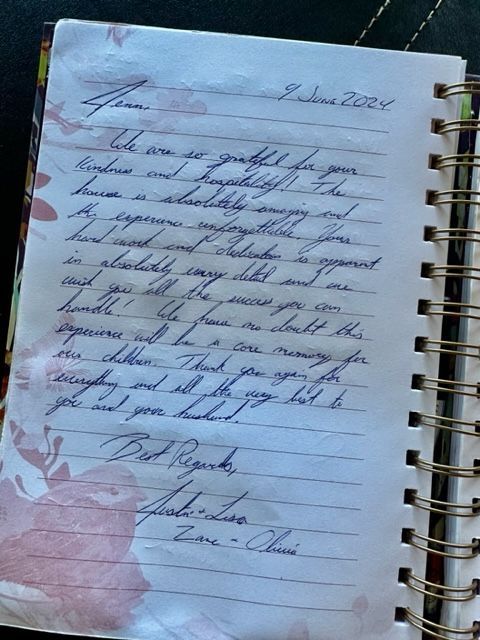 9 June 2024
Jenn,
We are so grateful for your
kindness and hospitality! The
house is absolutely amazing and
the experience unforgettable. Your
hard work and dedication is apparent
in absolutely every detail and we
wish you all the success you can
handle! We have no doubt this
experience will be a core memory for
our children. Thank you again for
everything and all the very best to
you and your husband.
Best Regards,
Justin + Lisa
Zane - Olivia